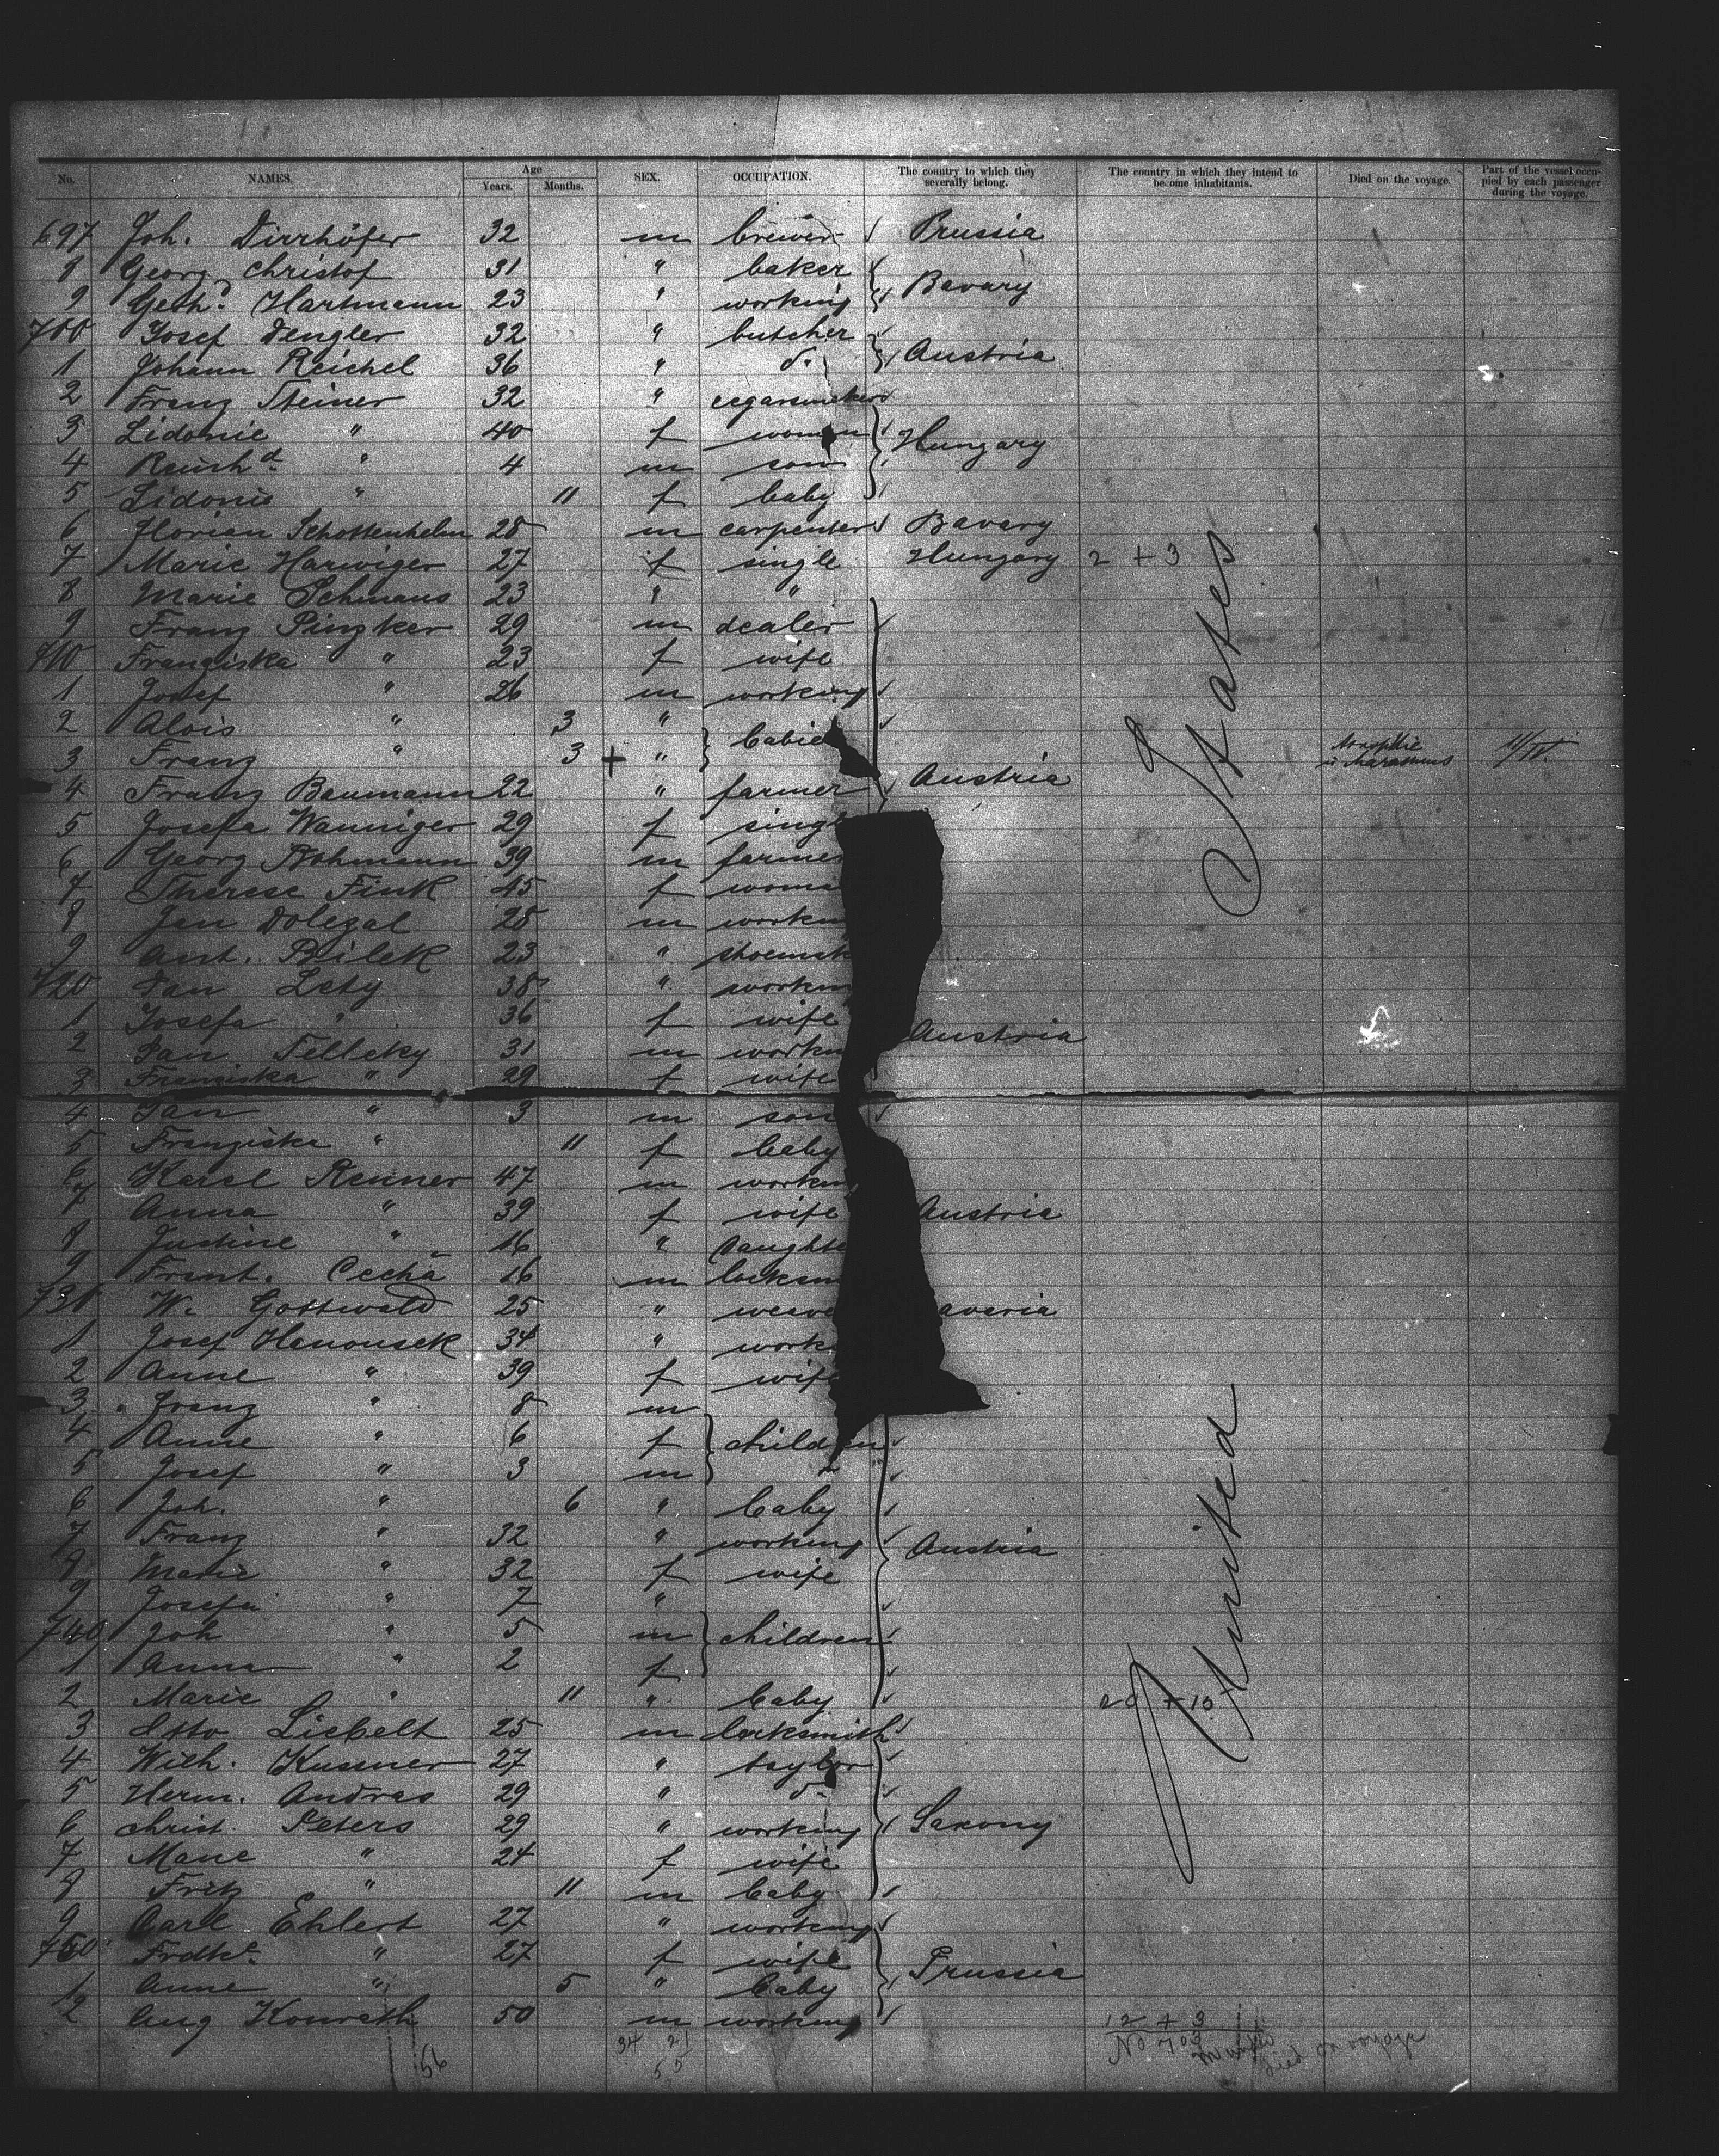 No. NAMES. Age Years. Months. SEX. OCCUPATION. The country to which they severally belong. The country in which they intend to become inhabitants. Died on the voyage. Part of the vessel occupied by each passenger during the voyage.
697 Joh. Dirrhöfer 32 m brewer Prussia
8 Georg Christof 31 " baker
9 Gebh.d Hartmann 23 " working Bavary
700 Josef Dengler 32 " butcher
1 Johann Reichel 36 " do. Austria
2 Franz Steiner 32 " cegarsmakers
3 Lidonie " 40 f woman Hungary
4 Reinh.d " 4 m son
5 Lidonie " 11 f baby
6 Florian Schottenhelm 28 m carpenter Bavary
7 Marie Harwiger 27 f single Hungary 2 + 3
8 Marie Schmaus 23 " "
9 Franz Pinzker 29 m dealer
710 Franziska " 23 f wife
1 Josef " 26 m working
2 Alois " 3 "
3 Franz " 3 + " babie Austria 11/IV.
4 Franz Baumann 22 " farmer
5 Josefa Wanniger 29 f singl
6 Georg 39 m farmer
7 Therese Fink 45 f woma
8 Jan Dolezal 28 m workin
9 Ant. Bilek 23 " shoemak
720 Jan Lety 38 " workin
1 Josefa " 36 f wife Austria
2 Jan Tellcky 31 m workin
3 Franziska " 29 f wife
4 Jan " 3 m son
5 Franziska " 11 f baby
6 Karel Renner 47 m workin
7 Anna " 39 f wife Austria
8 Justine " 16 " Daughte
9 Frant. Cecha 16 m locksm
730 W. Gottwald 25 " weave avaria
1 Josef Hanousek 34 " work
2 Anne " 39 f wife
3 Franz " 8 m
4 Anne " 6 f children
5 Josef " 3 m
6 Joh. " 6 " baby
7 Franz " 32 " working Austria
8 Marie " 32 f wife
9 Josefa " 7 "
740 Joh " 5 m children
1 Anna " 2 f
2 Marie " 11 " baby 20 + 10
3 Otto Liebelt 25 m locksmith
4 Wilh. Kussner 27 " taylor
5 Herm. Andras 29 " do.
6 Christ. Peters 29 " working Saxony
7 Marie " 24 f wife
8 Fritz " 11 m baby
9 Carl Ehlert 27 " working
750 Frdke. " 27 f wife Prussia
1 Anne " 5 " baby
2 Aug Konrath 50 m working 12 + 3
United States
34 21
55
56
No 703 died on voyage